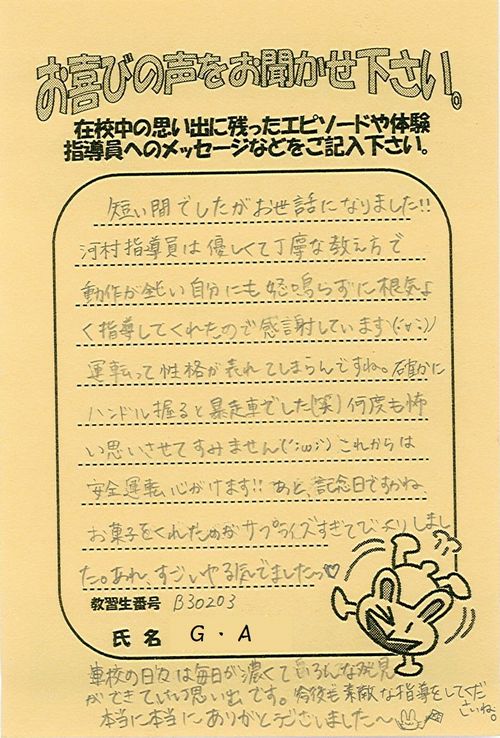 お喜びの声をお聞かせ下さい。
在校中の思い出に残ったエピソードや体験
指導員へのメッセージなどをご記入下さい。
短い間でしたがお世話になりました!!
河村指導員は優しくて丁寧な教え方で
動作が鈍い自分にも怒鳴らずに根気よ
く指導してくれたので感謝しています
運転って性格が表れてしまうんですね。確かに
ハンドル握ると暴走車でした(笑)何度も怖
い思いさせてすみません(´;ω;`)これからは
安全運転心がけます!!あと、記念日ですかね
お菓子をくれたのがサプライズすぎてびっくりしまし
た。あれ、すごいやる気でましたっ♡
教習生番号 B30203
氏名 G・A
車校の日々は毎日が濃くていろんな発見
ができていい思い出です。今後も素敵な指導をしてくだ
さいね。
本当に本当にありがとうございました〜